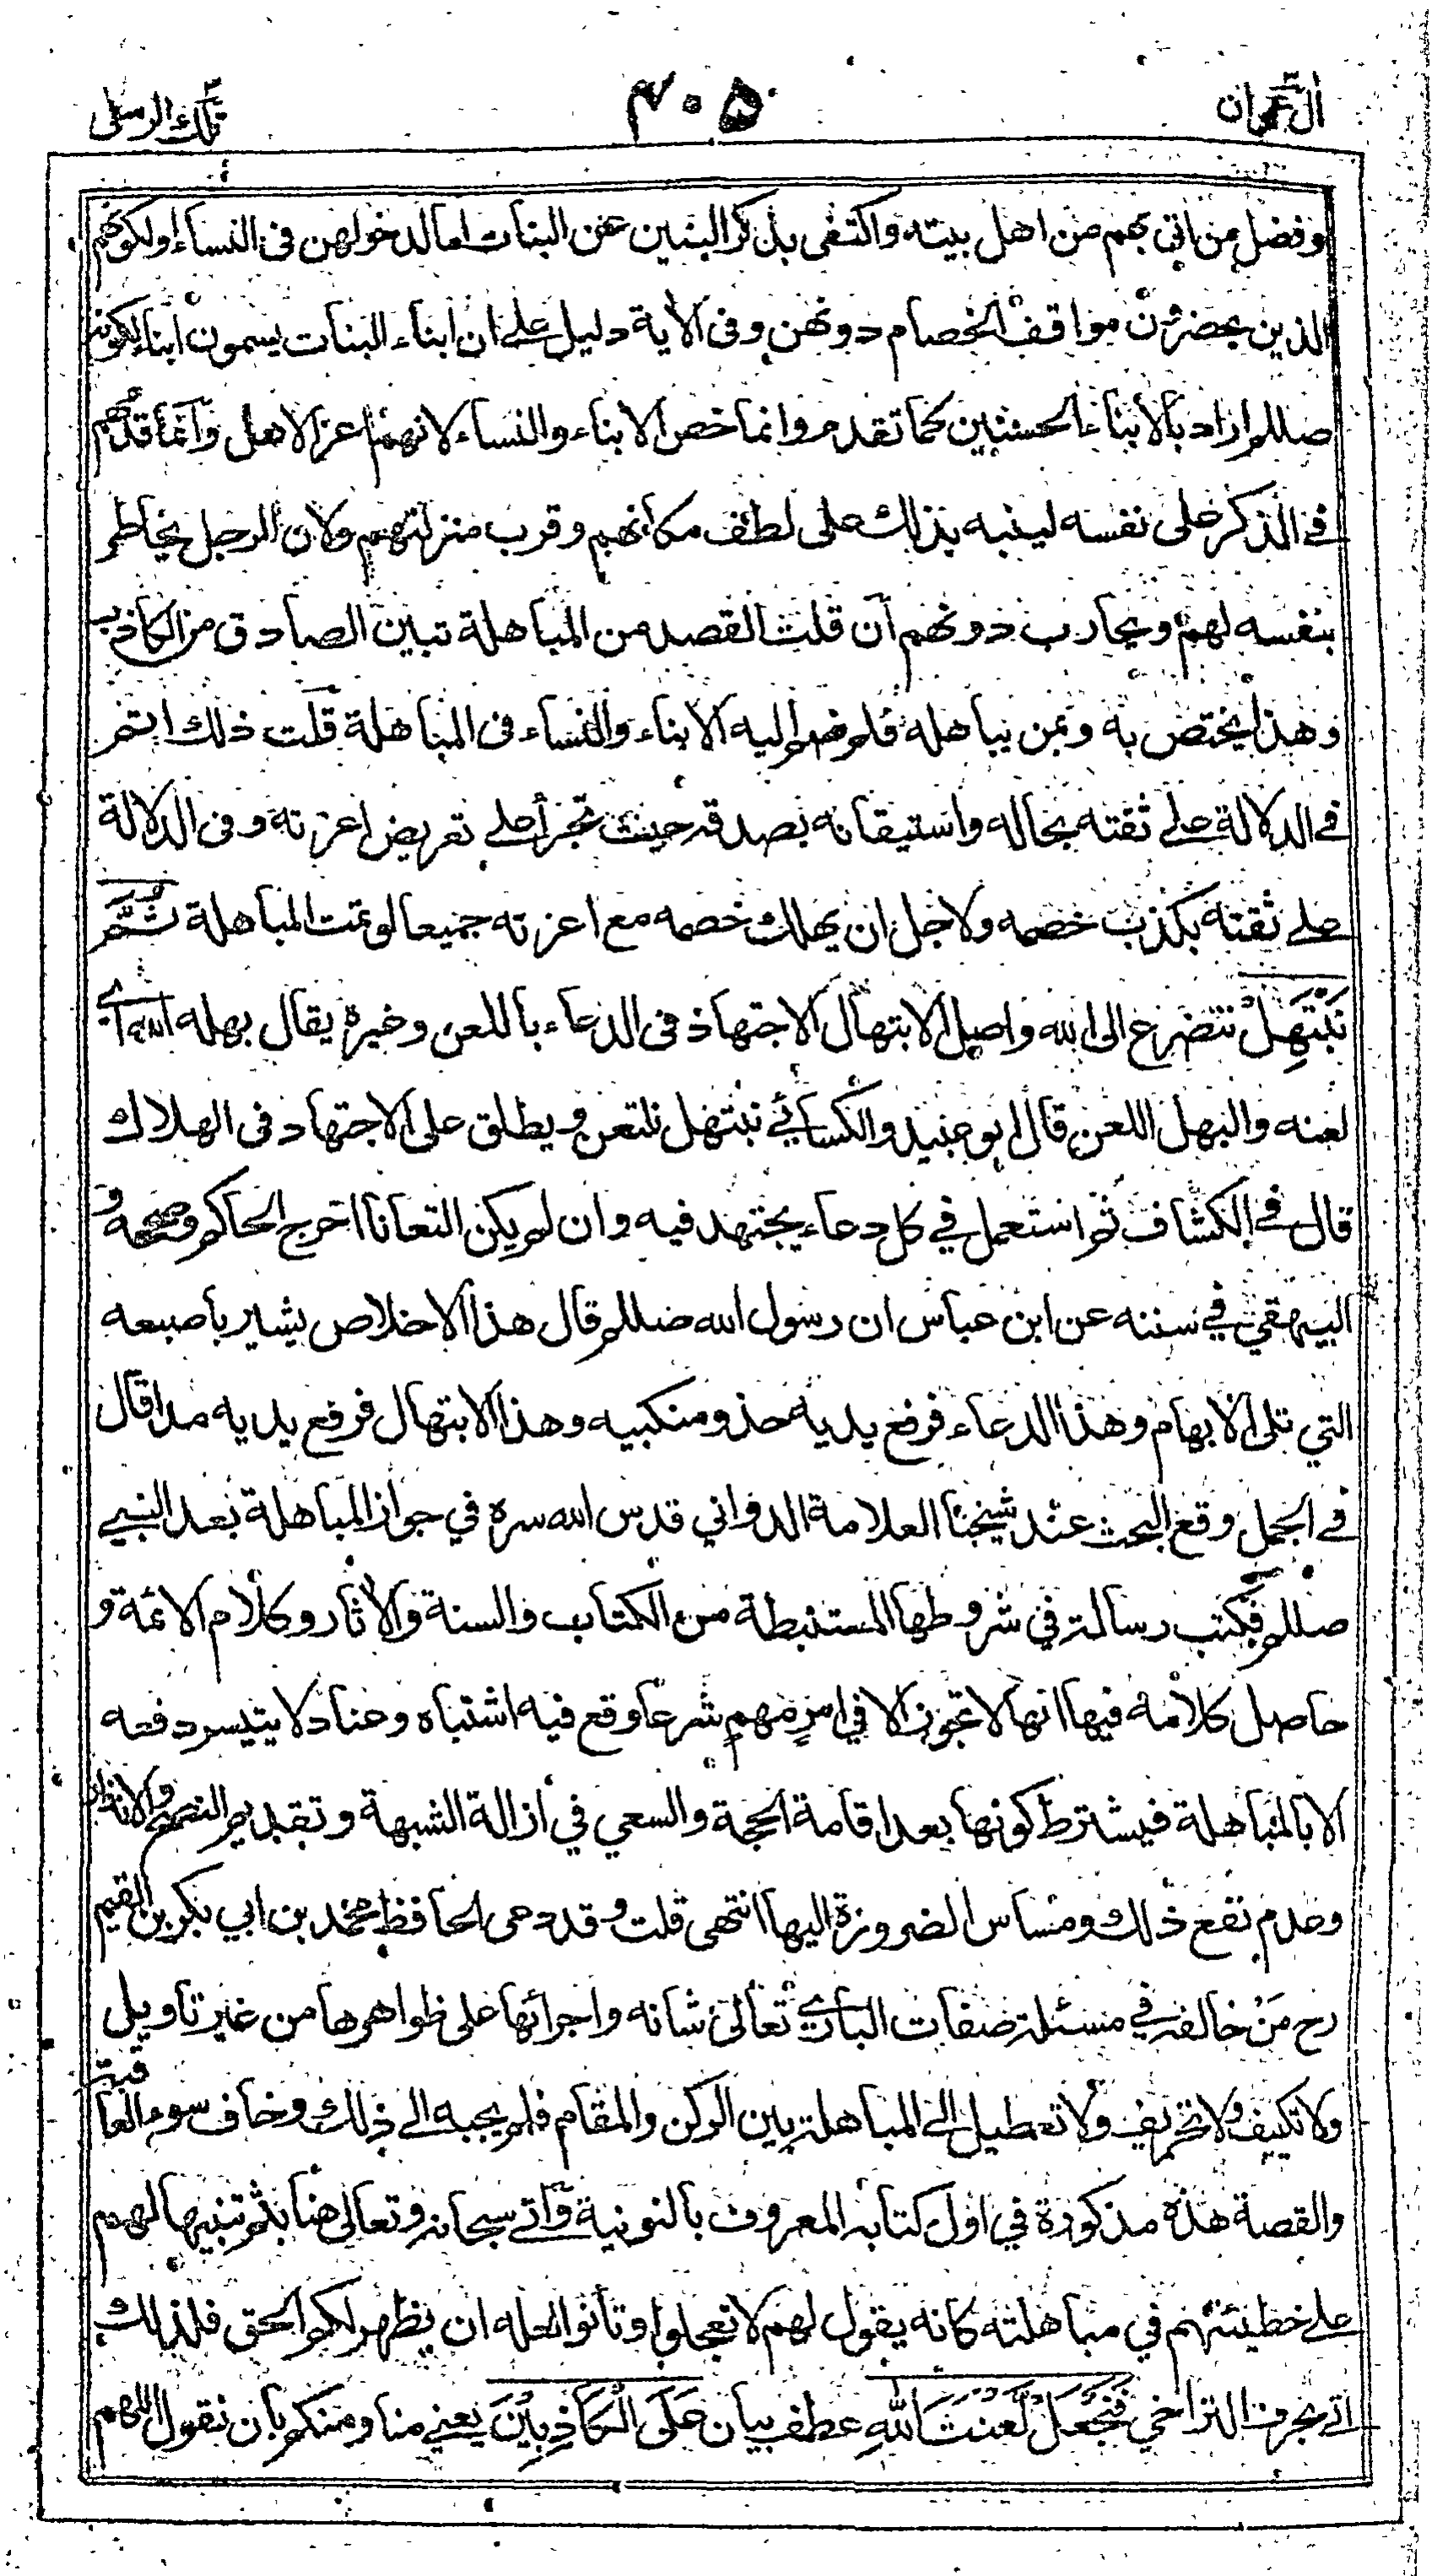 اٰل عمران
۴۰۵
تلك الرسل
وفضل من اتى بهم من اهل بيته واكتفى بذكر البنين عن البنات اما لدخولهن فى النساء او لكونهم
الذين يحضرون مواقف الخصام دونهن وفى الاٰية دليل على ان ابناء البنات يسمون ابناء لكونه
صللم اراد بالابناء الحسنين كما تقدم وانما خص الابناء والنساء لانهم اعز الاهل وانما قدمهم
فى الذكر على نفسه لينبه بذلك على لطف مكانهم وقرب منزلتهم ولان الرجل يخاطر
بنفسه لهم ويحارب دونهم ان قلت القصد من المباهلة تبين الصادق من الكاذب
وهذا يختص به وبمن يباهله فلم ضم اليه الابناء والنساء فى المباهلة قلت ذلك اتم
فى الدلالة على ثقته بحاله واستيقانه بصدقه حيث تجرأ على تعريض اعزته وفى الدلالة
على ثقته بكذب خصمه ولاجل ان يهلك خصمه مع اعزته جميعا لو تمت المباهلة ثُمَّ
نَبْتَهِلْ نتضرع الى الله واصل الابتهال الاجتهاد فى الدعاء باللعن وغيره يقال بهله الله اي
لعنه والبهل اللعن قال ابو عبيد والكسائي نبتهل نلتعن ويطلق على الاجتهاد فى الهلاك
قال في الكشاف ثم استعمل في كل دعاء يجتهد فيه وان لم يكن التعانا اخرج الحاكم وصححه و
البيهقي في سننه عن ابن عباس ان رسول الله صللم قال هذا الاخلاص يشير باصبعه
التي تلى الابهام وهذا الدعاء فرفع يديه حذو منكبيه وهذا الابتهال فرفع يديه مدا قال
في الجمل وقع البحث عند شيخنا العلامة الدواني قدس الله سره في جواز المباهلة بعد النبي
صللم فكتب رسالة في شروطها المستنبطة من الكتاب والسنة والاٰثار وكلام الائمة و
حاصل كلامه فيها انها لا تجوز الا في امرٍ مهمٍ شرعا وقع فيه اشتباه وعناد لا يتيسر دفعه
الا بالمباهلة فيشترط كونها بعد اقامة الحجة والسعي في ازالة الشبهة وتقديم النصح والانذار
وعدم نفع ذلك ومساس الضرورة اليها انتهى قلت وقد دعى الحافظ محمد بن ابي بكر بن القيم
رح مَنْ خالفه في مسئلة صفات الباري تعالى شانه واجرائها على ظواهرها من غير تاويل
ولا تكييف ولا تحريف ولا تعطيل الى المباهلة بين الركن والمقام فلم يجبه الى ذلك وخاف سوء العاقبة
والقصة هذه مذكورة في اول كتابه المعروف بالنونية واتى سبحانه وتعالى هنا بثم تنبيها لهم
على خطيئتهم في مباهلته كانه يقول لهم لا تعجلوا وتأنوا لعله ان يظهر لكم الحق فلذلك
اتى بحرف التراخي فَنَجْعَلْ لَّعْنَتَ اللّٰهِ عطف بيان عَلَى الْكَاذِبِيْنَ يعني منا ومنكم بان نقول اللهم